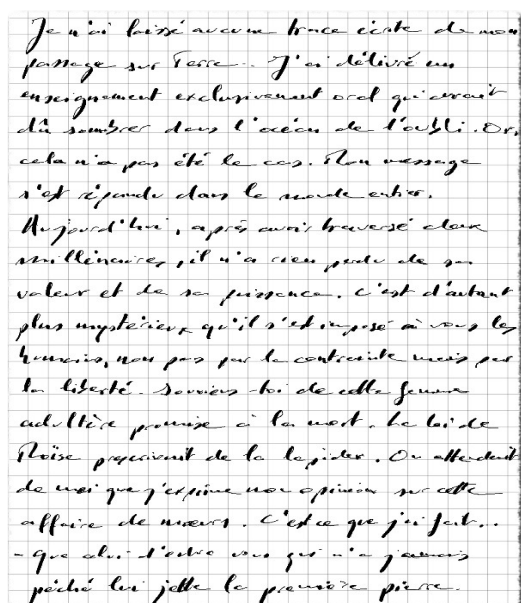 Je n'ai laissé aucune trace écrite de mon
passage sur Terre. J'ai délivré un
enseignement exclusivement oral qui aurait
dû sombrer dans l'océan de l'oubli. Or,
cela n'a pas été le cas. Mon message
s'est répandu dans le monde entier.
Aujourd'hui, après avoir traversé deux
millénaires, il n'a rien perdu de sa
valeur et de sa puissance. C'est d'autant
plus mystérieux qu'il s'est imposé à vous les
humains, non pas par la contrainte mais par
la liberté. Souviens-toi de cette femme
adultère promise à la mort. La loi de
Moïse prescrivait de la lapider. On attendait
de moi que j'exprime mon opinion sur cette
affaire de mœurs. C'est ce que j'ai fait..
- Que celui d'entre vous qui n'a jamais
péché lui jette la première pierre.